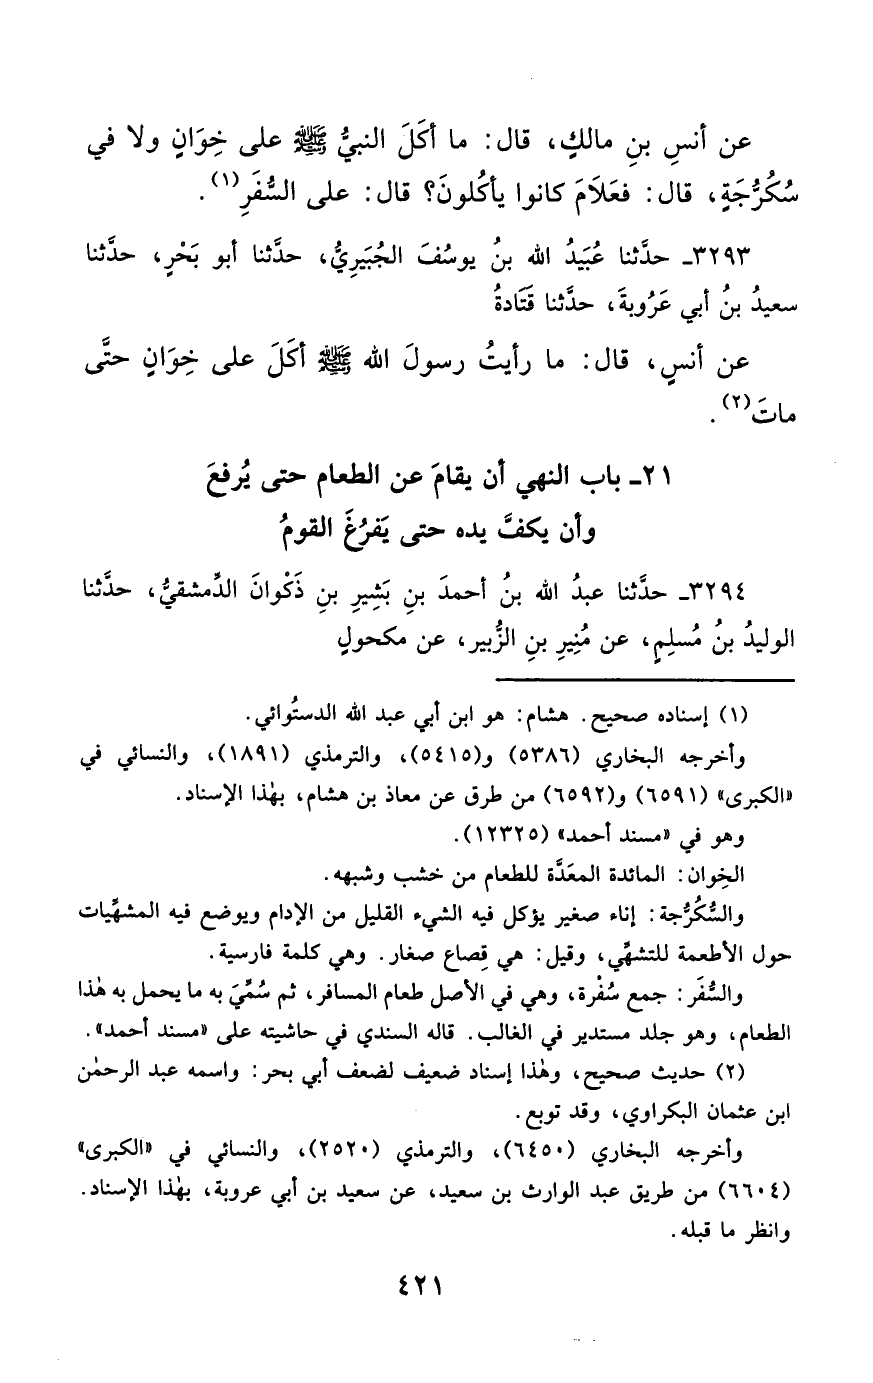 عن أنسِ بنِ مالكٍ، قال: ما أكَلَ النبيُّ ﷺ على خِوَانٍ ولا في
سُكُرُّجَةٍ، قال: فعَلَامَ كانوا يأكُلونَ؟ قال: على السُّفَرِ(١).
٣٢٩٣ـ حدَّثنا عُبَيدُ الله بنُ يوسُفَ الجُبَيرِيُّ، حدَّثنا أبو بَحْرٍ، حدَّثنا
سعيدُ بنُ أبي عَرُوبةَ، حدَّثنا قَتَادةُ
عن أنسٍ، قال: ما رأيتُ رسولَ الله ﷺ أكَلَ على خِوَانٍ حتَّى
ماتَ(٢).
٢١ـ باب النهي أن يقامَ عن الطعام حتى يُرفعَ
وأن يكفَّ يده حتى يَفرُغَ القومُ
٣٢٩٤ـ حدَّثنا عبدُ الله بنُ أحمدَ بنِ بَشِيرِ بنِ ذَكْوانَ الدِّمشقيُّ، حدَّثنا
الوليدُ بنُ مُسلِمٍ، عن مُنِيرِ بنِ الزُّبير، عن مكحولٍ
(١) إسناده صحيح. هشام: هو ابن أبي عبد الله الدستُوائي.
وأخرجه البخاري (٥٣٨٦) و(٥٤١٥)، والترمذي (١٨٩١)، والنسائي في
«الكبرى» (٦٥٩١) و(٦٥٩٢) من طرق عن معاذ بن هشام، بهٰذا الإسناد.
وهو في «مسند أحمد» (١٢٣٢٥).
الخِوان: المائدة المعَدَّة للطعام من خشب وشبهه.
والسُّكُرُّجة: إناء صغير يؤكل فيه الشيء القليل من الإدام ويوضع فيه المشهِّيات
حول الأطعمة للتشهِّي، وقيل: هي قِصاع صغار. وهي كلمة فارسية.
والسُّفَر: جمع سُفْرة، وهي في الأصل طعام المسافر، ثم سُمِّيَ به ما يحمل به هٰذا
الطعام، وهو جلد مستدير في الغالب. قاله السندي في حاشيته على «مسند أحمد».
(٢) حديث صحيح، وهٰذا إسناد ضعيف لضعف أبي بحر: واسمه عبد الرحمٰن
ابن عثمان البكراوي، وقد توبع.
وأخرجه البخاري (٦٤٥٠)، والترمذي (٢٥٢٠)، والنسائي في «الكبرى»
(٦٦٠٤) من طريق عبد الوارث بن سعيد، عن سعيد بن أبي عروبة، بهٰذا الإسناد.
وانظر ما قبله.
٤٢١